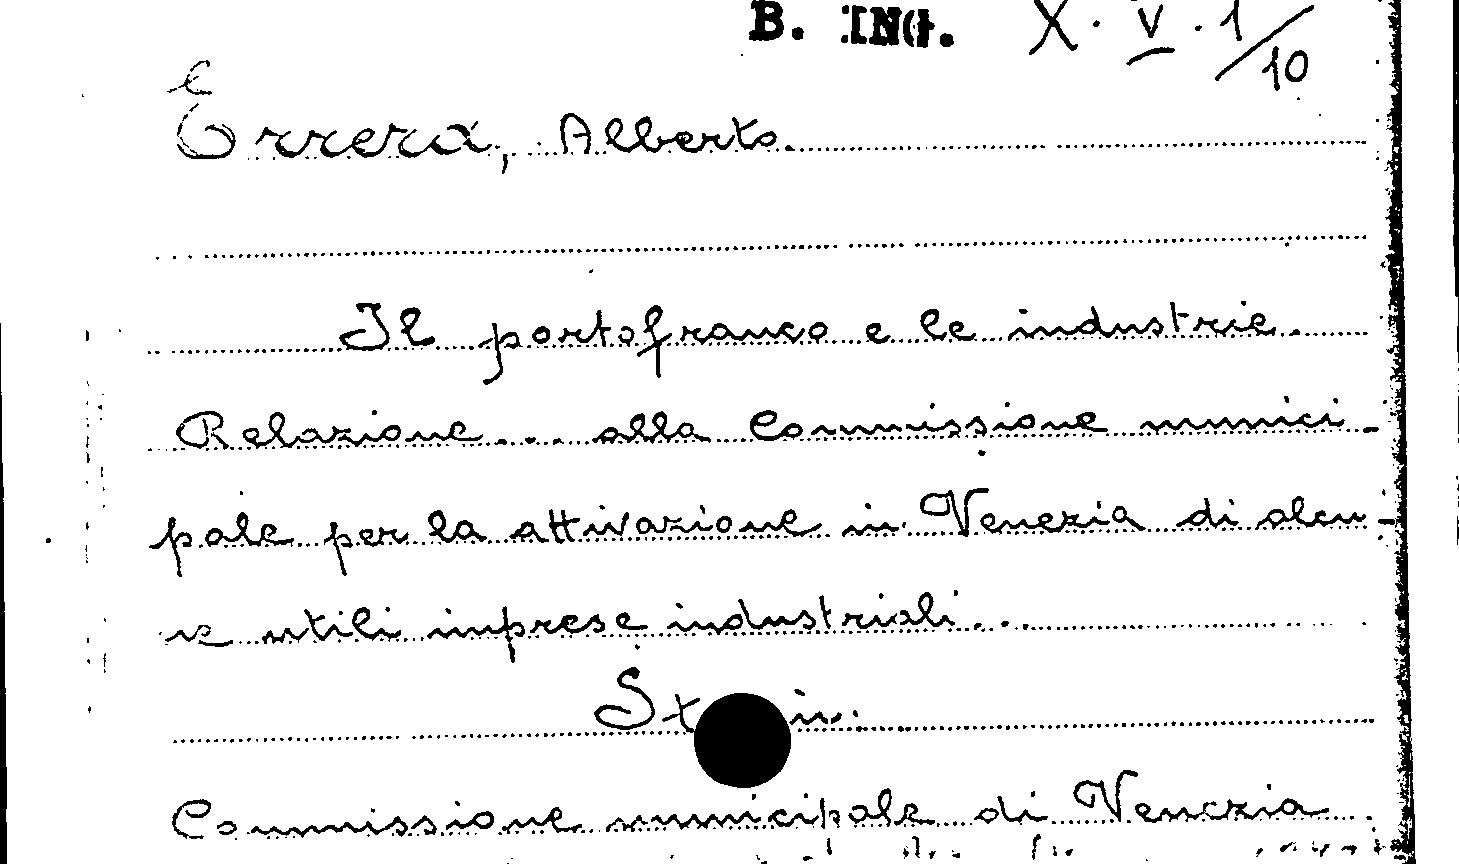 B. ING. X. V. 1/10
Errera, Alberto.
Il portofranco e le industrie.
Relazione... alla Commissione munici-
pale per la attivazione in Venezia di alcu-
ne utili imprese industriali...
in:
Commissione municipale di Venezia